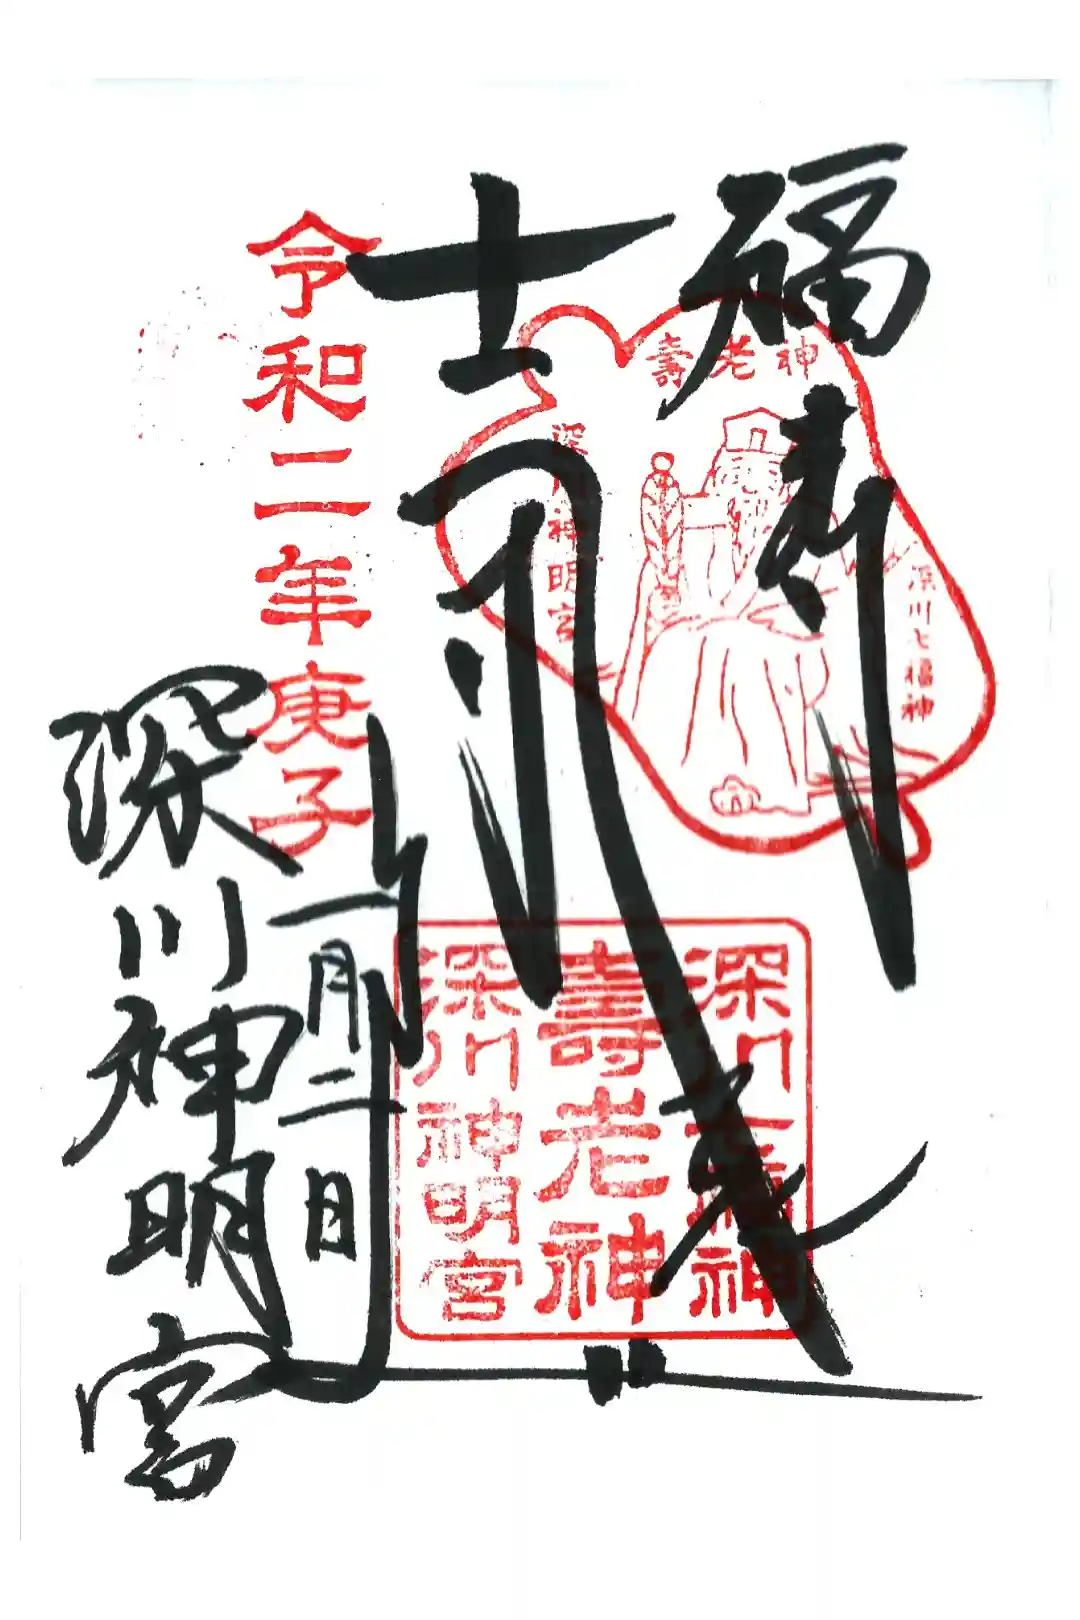 福寿
壽老神
深川七福神
深川神明宮
深川七福神
壽老神
深川神明宮
令和二年庚子
一月二日
深川神明宮